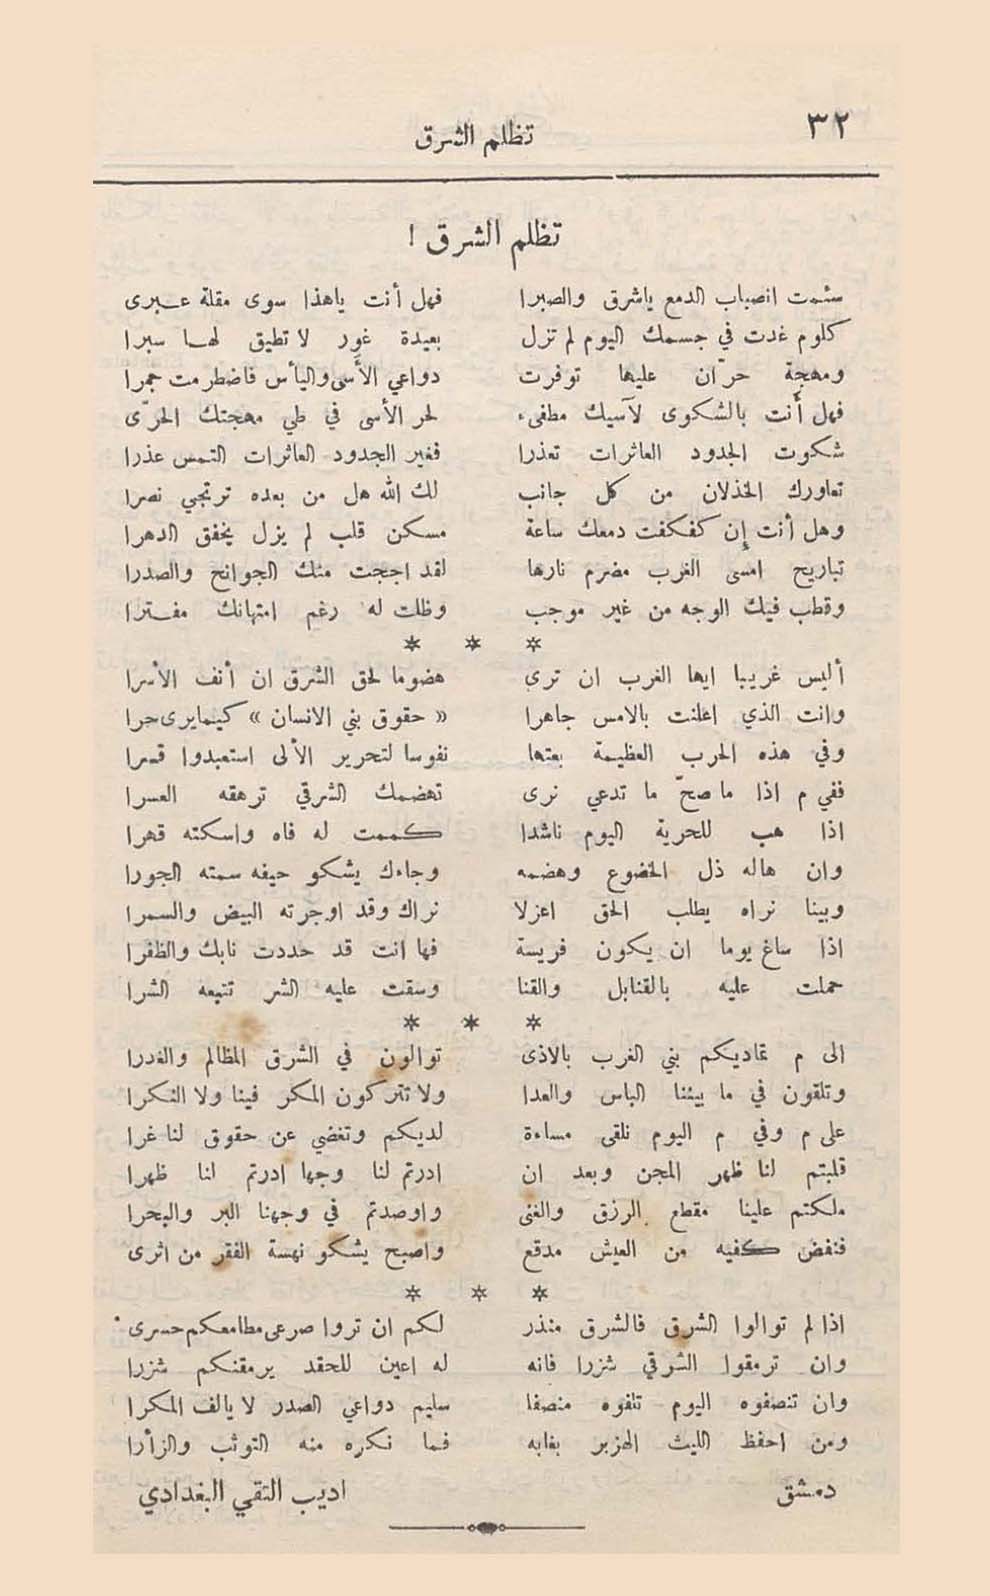 ٣٢
تظلم الشرق
تظلم الشرق !
سئمت انصباب الدمع ياشرق والصبرا فهل أنت ياهذا سوى مقلة عبرى
كلوم غدت في جسمك اليوم لم تزل بعيدة غور لا تطيق لها سبرا
ومهجة حرّان عليها توفرت دواعي الأسى واليأس فاضطرمت جمرا
فهل أنت بالشكوى لآسيك مطفىء لحر الأسى في طي مهجتك الحرّى
شكوت الجدود العاثرات تعذرا فغير الجدود العاثرات التمس عذرا
تعاورك الخذلان من كل جانب لك الله هل من بعده ترتجي نصرا
وهل أنت إن كفكفت دمعك ساعة مسكن قلب لم يزل يخفق الدهرا
تباريح امسى الغرب مضرم نارها لقد اججت منك الجوانح والصدرا
وقطب فيك الوجه من غير موجب وظلت له رغم امتهانك مفترا
* * *
أليس غريبا ايها الغرب ان ترى هضوما لحق الشرق ان أنف الأسرا
وانت الذي اعلنت بالامس جاهرا « حقوق بني الانسان » كيما يرى حرا
وفي هذه الحرب العظيمة بعتها نفوسا لتحرير الألى استعبدوا قسرا
ففي م اذا ما صحّ ما تدعي نرى تهضمك الشرقي ترهقه العسرا
اذا هب للحرية اليوم ناشدا كممت له فاه واسكته قهرا
وان هاله ذل الخضوع وهضمه وجاءك يشكو حيفه سمته الجورا
وبينا نراه يطلب الحق اعزلا نراك وقد اوجرته البيض والسمرا
اذا ساغ يوما ان يكون فريسة فها انت قد حددت نابك والظفرا
حملت عليه بالقنابل والقنا وسقت عليه الشر تتبعه الشرا
* * *
الى م تماديكم بني الغرب بالاذى توالون في الشرق المظالم والغدرا
وتلقون في ما بيننا الباس والعدا ولا تتركون المكر فينا ولا النكرا
على م وفي م اليوم نلقى مساءة لديكم وتغضي عن حقوق لنا غرا
قلبتم لنا ظهر المجن وبعد ان ادرتم لنا وجها ادرتم لنا ظهرا
ملكتم علينا مقطع الرزق والغنى واوصدتم في وجهنا البر والبحرا
فنفض كفيه من العيش مدقع واصبح يشكو نهسة الفقر من اثرى
* * *
اذا لم توالوا الشرق فالشرق منذر لكم ان تروا صرعى مطامعكم حسرى
وان ترمقوا الشرقي شزرا فانه له اعين للحقد يرمقنكم شزرا
وان تنصفوه اليوم تلفوه منصفا سليم دواعي الصدر لا يالف المكرا
ومن احفظ الليث الهزبر بغابه فما نكره منه التوثب والزأرا
دمشق اديب التقي البغدادي